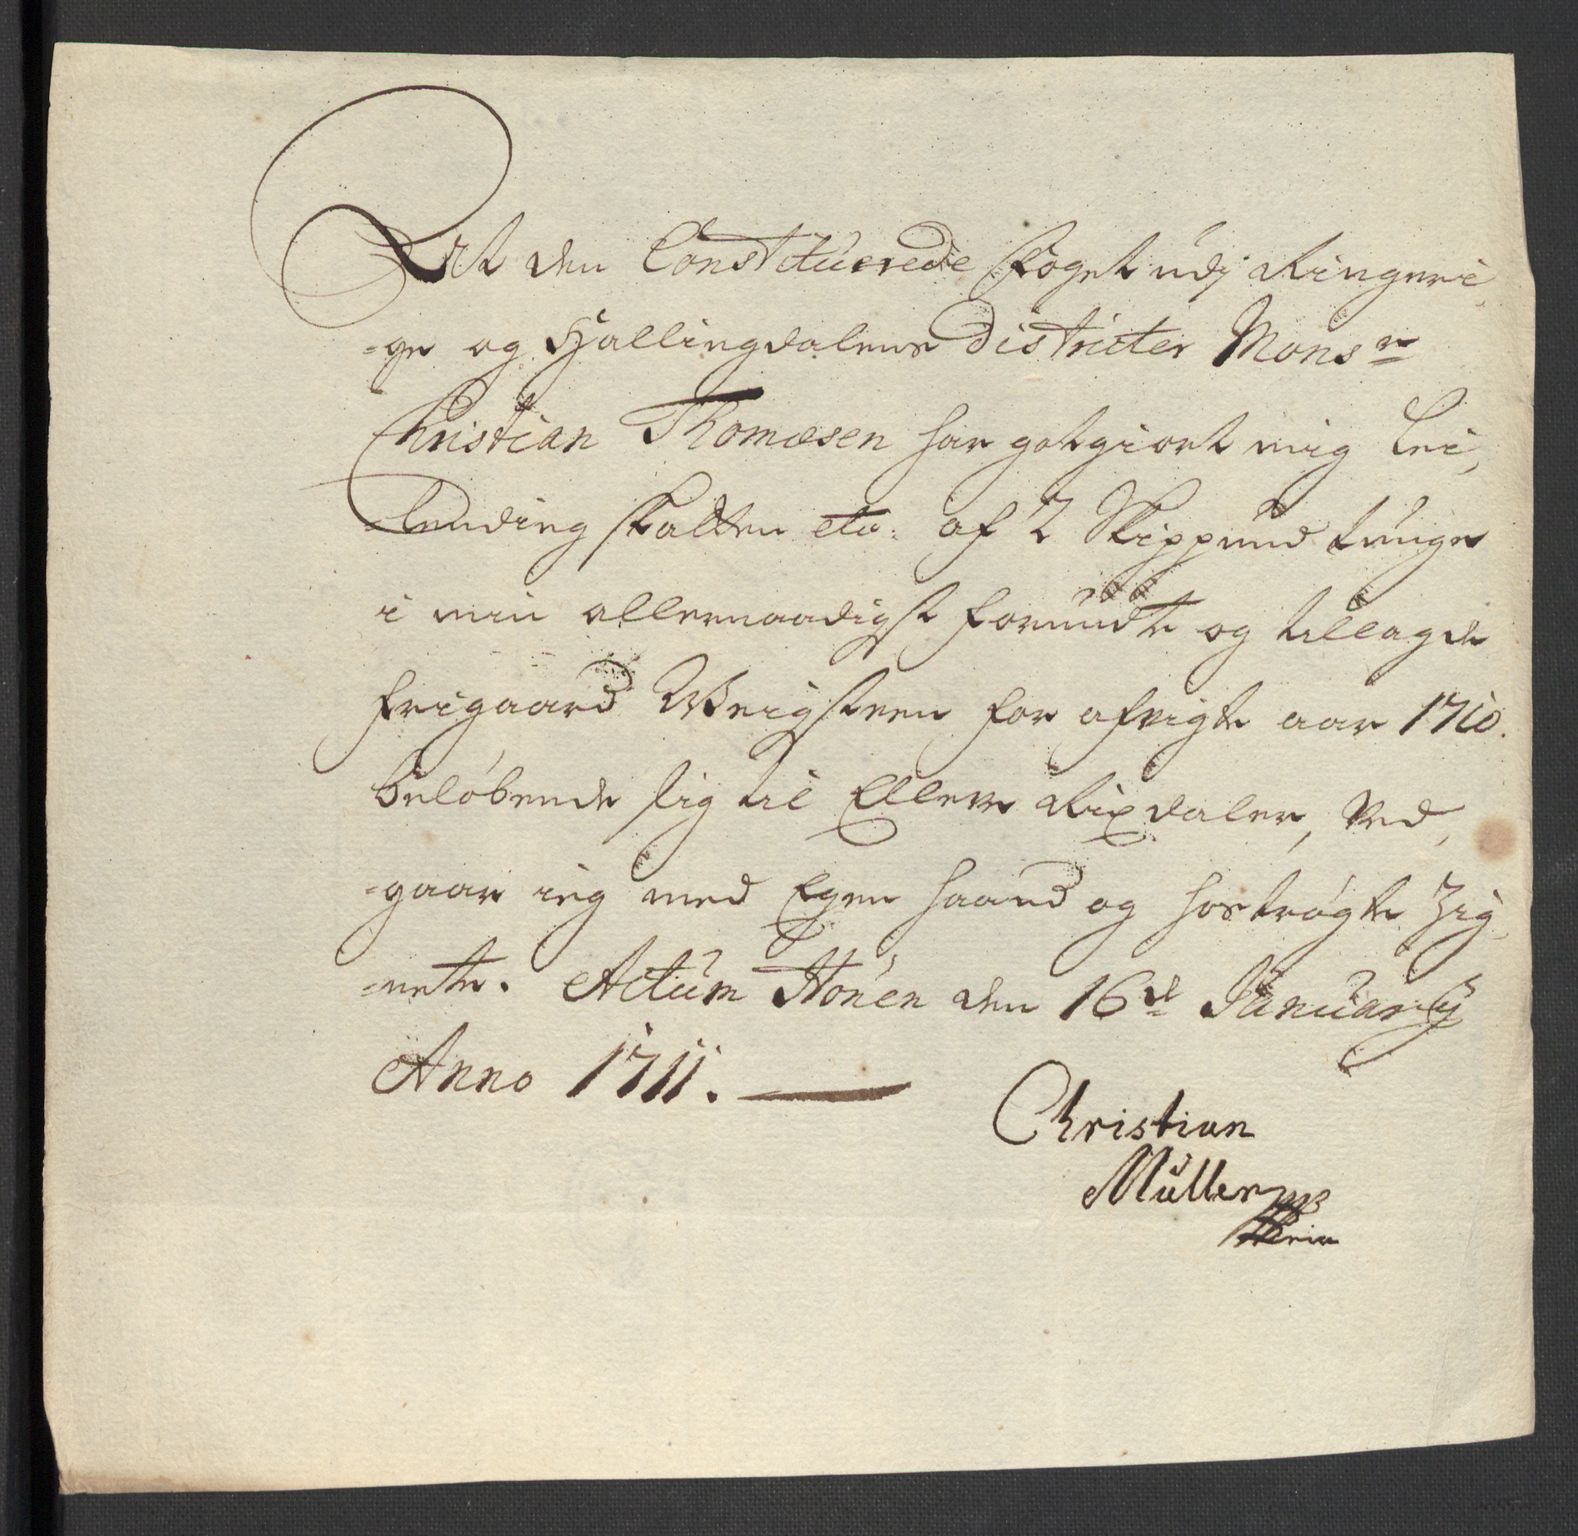 At den Constituerede foget udj Ringeri,
-ge og Hallingdalens Districter Monsr
Christian Thomæsen har gotgiort mig Lei,
-lending skatten etc: af 2 Skippund tunge
i min allernaadigst forundte og tillagde
frigaard Weigsteen for afvigte aar 1710.
beløbende sig til Elleve Rixdaler, Ved,
-gaar ieg med Egen haand og hostrøgte Zig,
-nete. Actum Honen den 16de Januarij
Anno 1711.
Christian
Müller